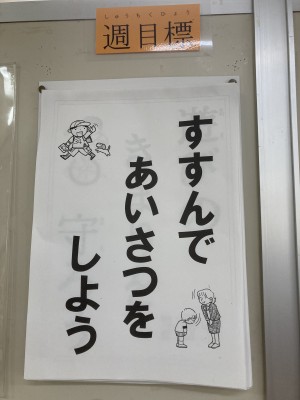 しゅうもくひょう
週目標
すすんで
あいさつを
しよう